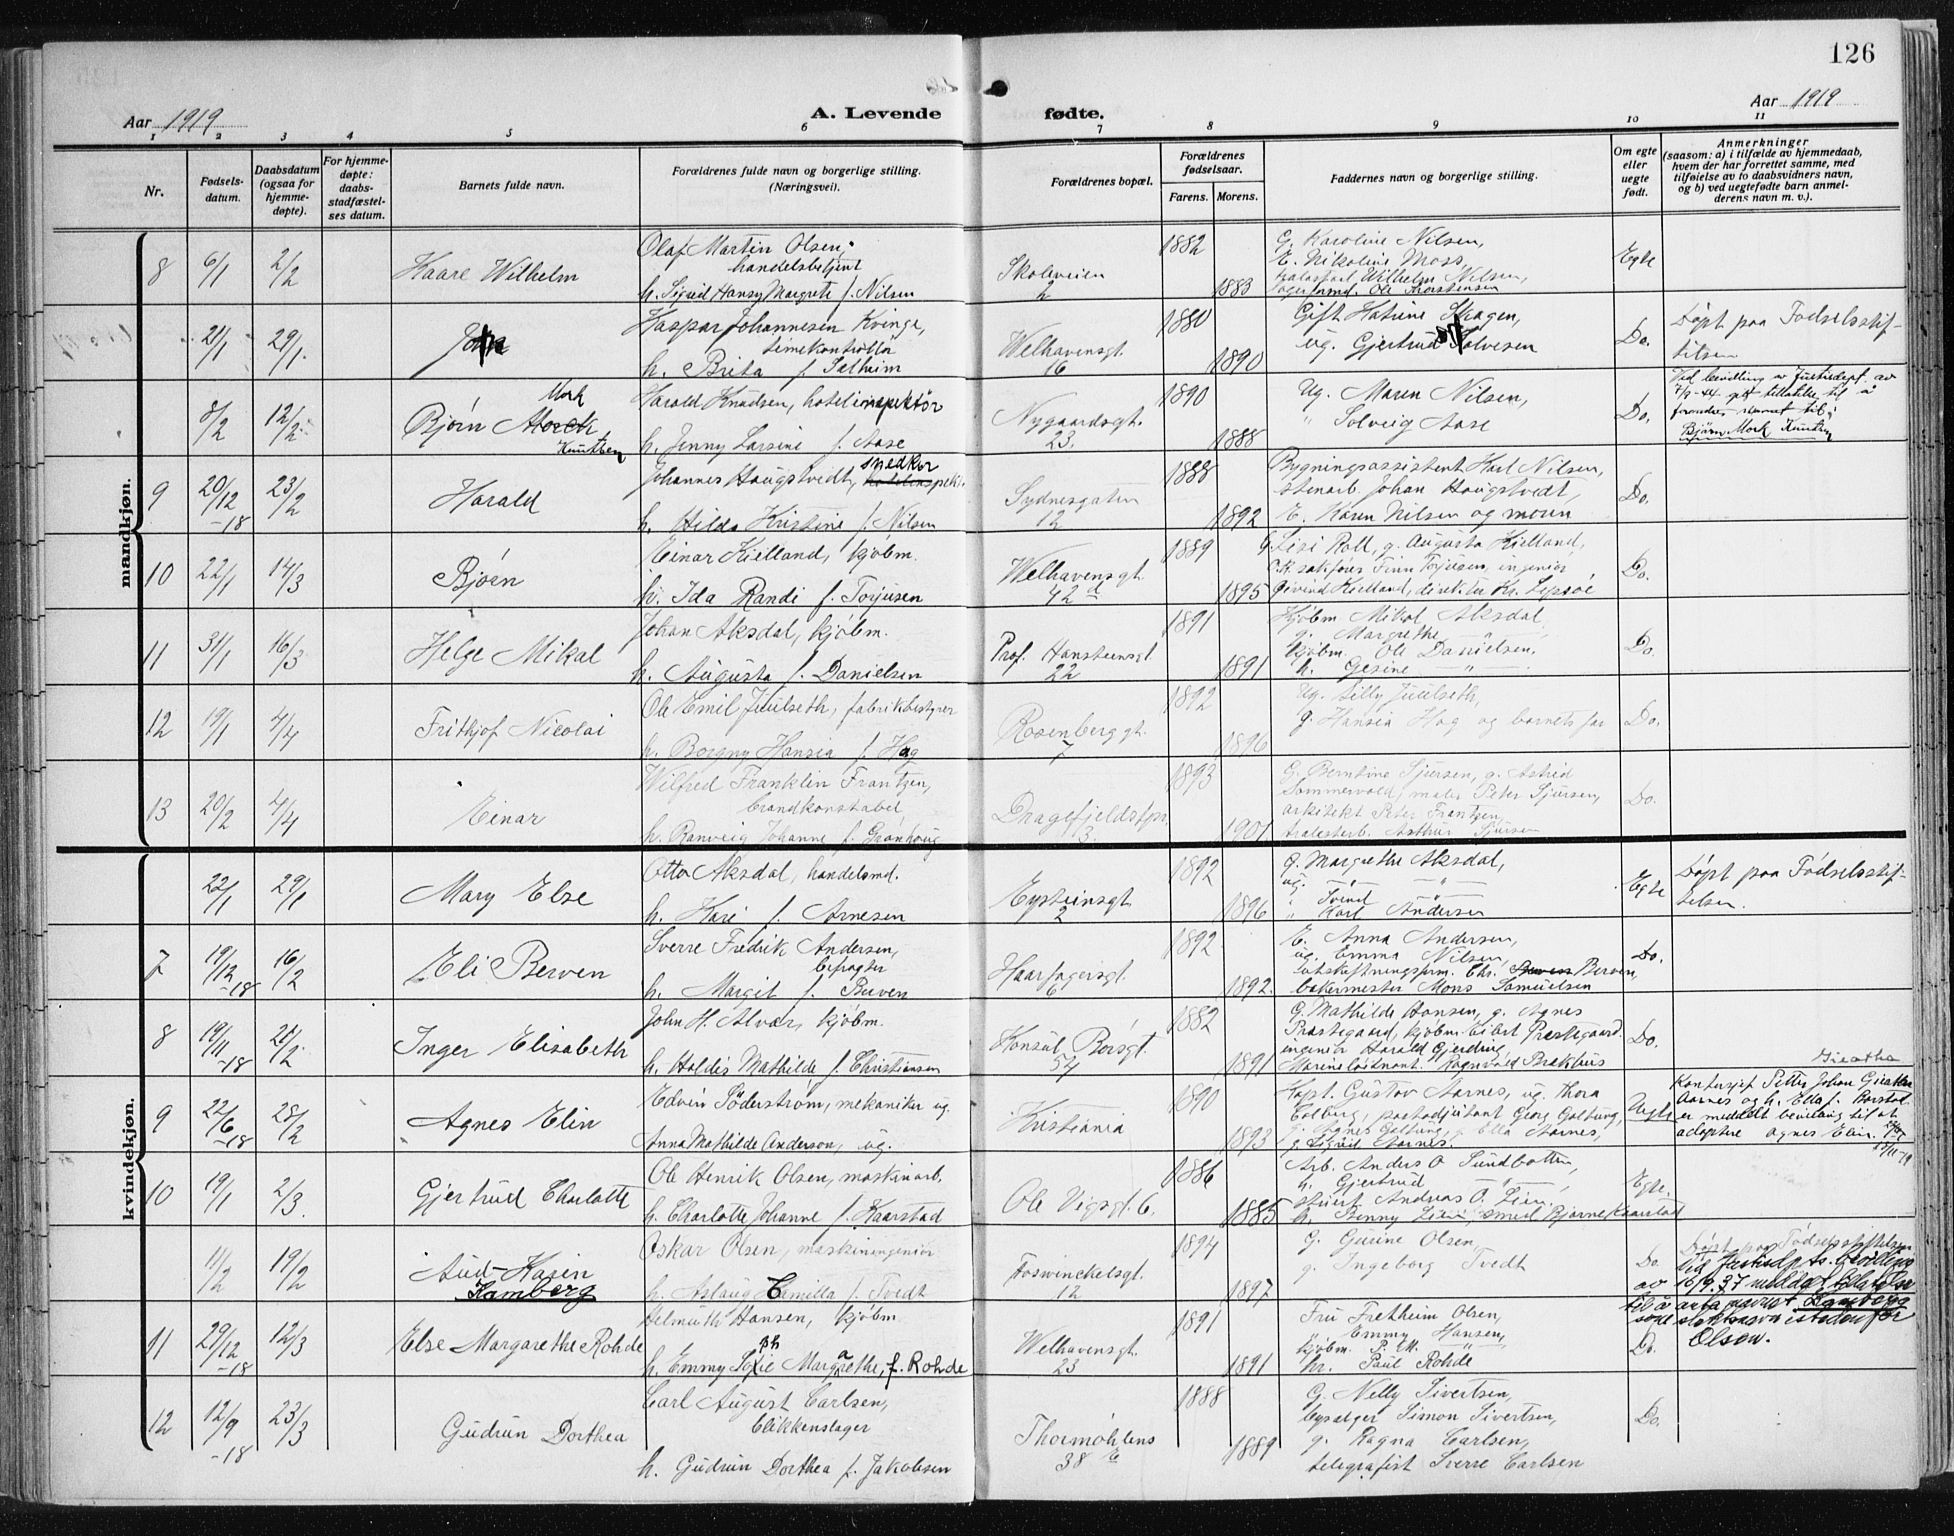 126
Aar 1919
A. Levende fødte.
Aar 1919
1 2 3 4 5 6 7 8 9 10 11
Nr.
Fødsels-
datum.
Daabsdatum
(ogsaa for
hjemme-
døpte).
For hjemme-
døpte:
daabs-
stadfæstel-
ses datum.
Barnets fulde navn.
Forældrenes fulde navn og borgerlige stilling.
(Næringsvei).
Forældrenes bopæl.
Forældrenes
fødselsaar.
Farens. Morens.
Faddernes navn og borgerlige stilling.
Om egte
eller
uegte
født.
Anmerkninger
(saasom: a) i tilfælde av hjemmedaab,
hvem der har forrettet samme, med
tilføielse av to daabsvidners navn,
og b) ved uegtefødte barn anmel-
derens navn m. v.).
mandkjøn.
8 6/1 2/2 Kaare Wilhelm
Olaf Martin Olsen,
handelsbetjent
h. Sigrid Hansy Margrete f. Nilsen
Skoleveien
2
1882
1883
G. Karoline Nilsen,
E. Nikoline Moss,
Wilhelm Nilsen,
Ole Thorstensen
Egte
21/1 29/1
Kaspar Johannesen Kvinge,
timekontrollør
h. Brita f. Selheim
Welhavensgt.
16
1880
1890
Gift Katrine Skagen,
ug. Gjertrud Tolvesen
Do.
Døpt paa Fødselsstif-
telsen
8/2 12/2 Bjørn Morck
Mork
Knutzen
Harald Knudsen, hotelinspektör
h. Jenny Larsine f. Aase
Nygaardsgt.
23.
1890
1888
Ug. Maren Nilsen,
" Solveig Aase
Do.
Ved bevilling av Justisdept. av
7/9-44 gitt tillatelse til å
forandre navnet til:
Bjørn Mork Knutzen
9 20/12-18 23/2 Harald
Johannes Haugstvedt, snedker
h. Hilda Kristine f. Nilsen
Sydnesgaten
12
1888
1892
Bygningsassistent Karl Nilsen,
stenarb. Johan Haugstvedt,
E. Karen Nilsen og moren
Do.
10 22/1 14/3 Bjørn
Einar Kielland, kjøbm.
h. Ida Randi f. Torjusen
Welhavensgt.
42 d
1889
1895
G. Sisi Roll, g. Augusta Kielland,
sakfører Finn Torjusen, ingeniør
Eivind Kielland, direktør Kr. Lepsøe
Do.
11 31/1 16/3 Helge Mikal
Johan Aksdal, kjøbm.
h. Augusta f. Danielsen
Prof. Hansteensgt.
22
1891
1891
Kjøbm Mikal Aksdal,
g. Margrethe —"—
kjøbm. Ole Danielsen,
h. Gesine —"—
Do.
12 19/1 4/4 Frithjof Nicolai
Ole Emil Juulseth, fabrikbestyrer
h. Borgny Hansia f. Hag
Rosenberggt.
7
1892
1896
Ug. Lilly Juulseth,
g. Hansia Hag og barnets far
Do.
13 20/2 4/4 Einar
Wilfred Franklin Frantzen,
brandkonstabel
h. Ranveig Johanne f. Grønhoug
Dragefjeldstpr.
3.
1893
1901
G. Berntine Sjursen, g. Astrid
Sommervold, maler Peter Sjursen,
arkitekt Peter Frantzen,
Arthur Sjursen
Do.
kvindekjøn.
22/1 29/1 Mary Else
Otto Aksdal, handelsmd.
h. Kari f. Arnesen
Eysteinsgt.
2
1892
1896
G. Margrethe Aksdal,
ug. Svend —"—
" Karl Andersen
Egte
Døpt paa Fødselsstif-
telsen.
7 19/12-18 16/2 Eli Berven
Sverre Fredrik Andersen,
befragter
h. Margit f. Berven
Haarfagersgt.
6
1892
1892.
E. Anna Andersen,
ug. Emma Nilsen,
Chr. Berven,
bakermester Mons Samuelsen
Do.
8 19/11-18 21/2 Inger Elisabeth
John H. Alver, kjøbm.
h. Holdis Mathilde f. Christiansen
Konsul Børsgt.
54
1882
1891
G. Mathilde Hansen, g. Agnes
Præstegaard, kjøbm. Eilert Præstegaard
ingeniør Harald Gjerding
Marineløitnant Ragnvald Brekhus
Do.
9 22/6-18 28/2 Agnes Elin
Edvin Söderström, mekaniker ug.
Anna Mathilde Anderson, ug.
Kristiania
1890
1893
Kapt. Gustav Aarnes, ug. Thora
Colberg, Georg Golberg,
g. Agnes Golberg, g. Ella Aarnes,
g. Sigrid Aarnes.
Uegte
Giertha
Kontorsjef Petter Johan Giertha
Aarnes og h. Ella f.
er meddelt bevilling til at
adoptere Agnes Elin.
10 19/1 2/3. Gjertrud Charlotte
Ole Henrik Olsen, maskinarb.
h. Charlotte Johanne f. Kaarstad
Ole Vigsgt. 6.
1886
1885
Arb. Anders O. Sundbotten,
h. Gjertrud —"—,
stuert Andreas O. Lien,
h. Benny Lien, smed Bjarne Kaarstad
Egte.
11/2 19/2 Aud-Karin
Kamberg
Oskar Olsen, maskiningeniør
h. Aslaug Camilla f. Tvedt
Foswinckelsgt.
12
1894
1897
G. Gurine Olsen,
g. Ingeborg Tvedt
Do.
Døpt paa Fødselsstiftelsen
Ved Justisdpts. bevilling
av 16/9.37 meddelt tilatelse
til å anta navnet Kamberg
som slektsnavn istedenfor
Olsen.
11 29/12-18 12/3 Else Margarethe Rohde
Helmuth Hansen, kjøbm
h. Emmy Sophie Margarethe, f. Rohde
Welhavensgt.
23
1891
1891
Fru Fretheim Olsen,
" Emmy Hansen,
kjøbm. P. M. —"—
hr. Paul Rohde
Do.
12 12/9-18 23/3 Gudrun Dorthea
Carl August Carlsen,
blikkenslager
h. Gudrun Dorthea f. Jakobsen
Thormøhlens
38 c
1888
1889
G. Nelly Sivertsen,
bysælger Simon Sivertsen,
g. Ragna Carlsen,
telegrafist Sverre Carlsen
Do.